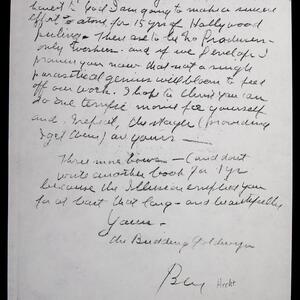 honest to God I am going to make a sincere
effort to atone for 15 yrs of Hollywood
pulling. There are to be no Producers-
only Workers. and if we develop I
promise you now that not a single
parasitical genius will bloom to feed
off our work. I hope to Christ you can
do one terrific movie for yourself
and I repeat, the (providing
I get them) are yours —
Three more bows — (and dont
write another book for 1 yr
because the Illusion enriched you
for at least that long - and beautifully
Yours -
the Budding Goldwyn
Ben Hecht